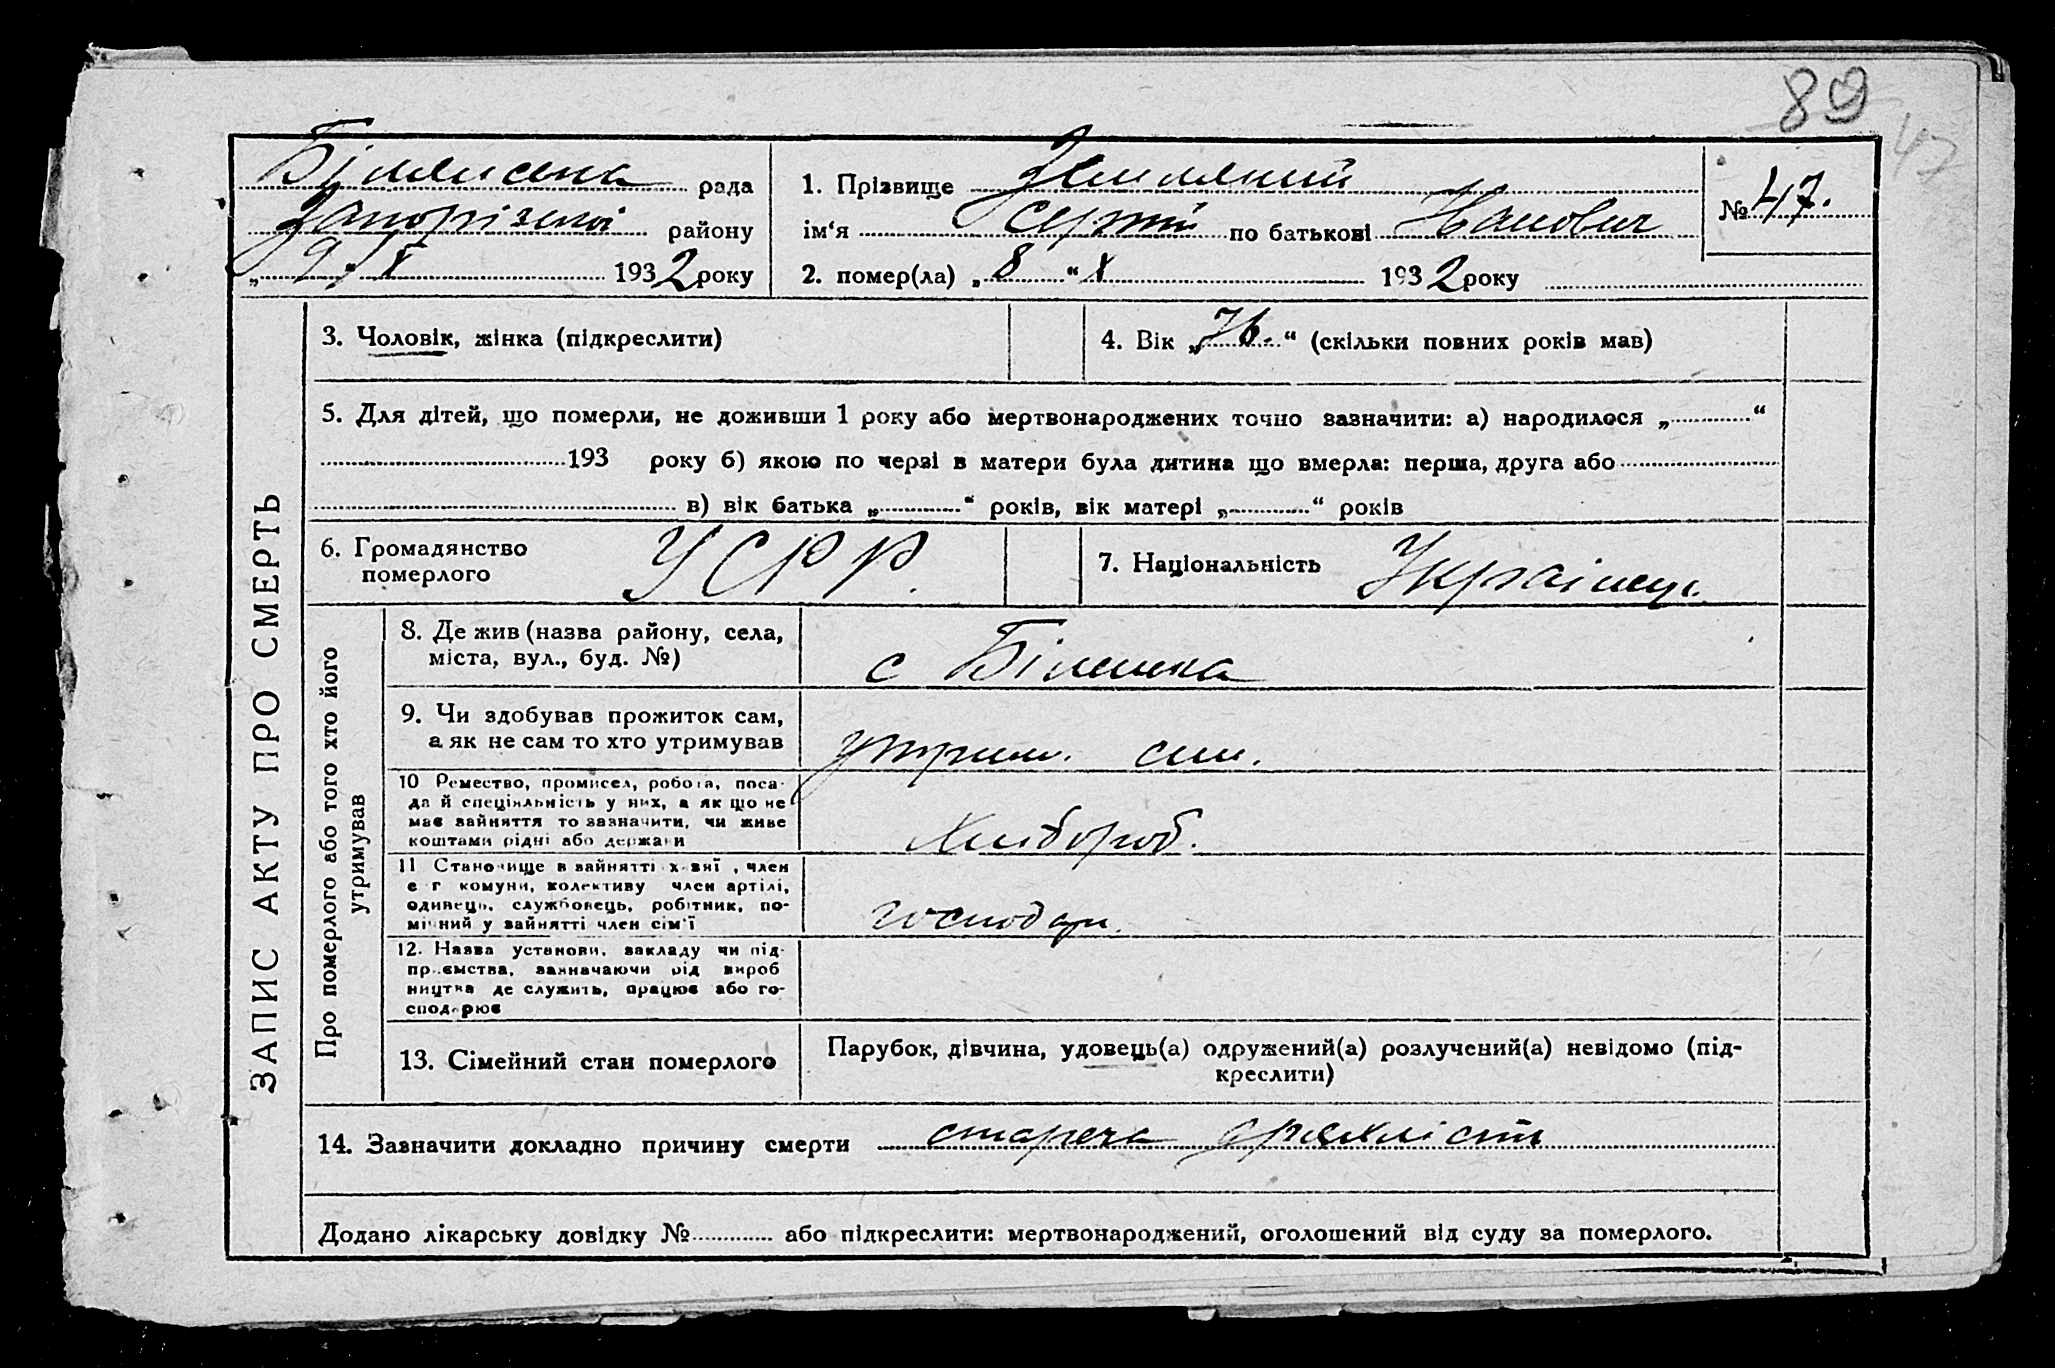 89
47
Білянська рада
Запорізької району
„ 9 / X 1932 року
1. Прізвище Земляний
ім‘я Сергій по батькові Іванович
№ 47.
2. помер(ла) „ 8 “ X 1932 року
ЗАПИС АКТУ ПРО СМЕРТЬ
3. Чоловік, жінка (підкреслити)
4. Вік „ 76. “ (скільки повних років мав)
5. Для дітей, що померли, не доживши 1 року або мертвонароджених точно зазначити: а) народилося „ “
193 року б) якою по черзі в матери була дитина що вмерла: перша, друга або
в) вік батька „ “ років, вік матері „ “ років
6. Громадянство
померлого
УСРР.
7. Національність Українець.
Про померлого або того хто його
утримував
8. Де жив (назва району, села,
міста, вул., буд. №)
с Біленька
9. Чи здобував прожиток сам,
а як не сам то хто утримував
утрим. син.
10 Ремество, промисел, робота, поса-
да й спеціяльність у них, а як що не
має зайняття то зазначити, чи живе
коштами рідні або держави
Хлібороб.
11 Становище в зайнятті хазяї, член
с г комуни, колективу член артілі,
одинець, службовець, робітник, по-
мічний у зайнятті член сім‘ї
господар.
12. Назва установи, закладу чи під-
приємства, зазначаючи від вироб
ництва де служить, працює або го-
сподарює
13. Сімейний стан померлого
Парубок, дівчина, удовець(а) одружений(а) розлучений(а) невідомо (під-
креслити)
14. Зазначити докладно причину смерти стареча дряхлість
Додано лікарську довідку № або підкреслити: мертвонароджений, оголошений від суду за померлого.